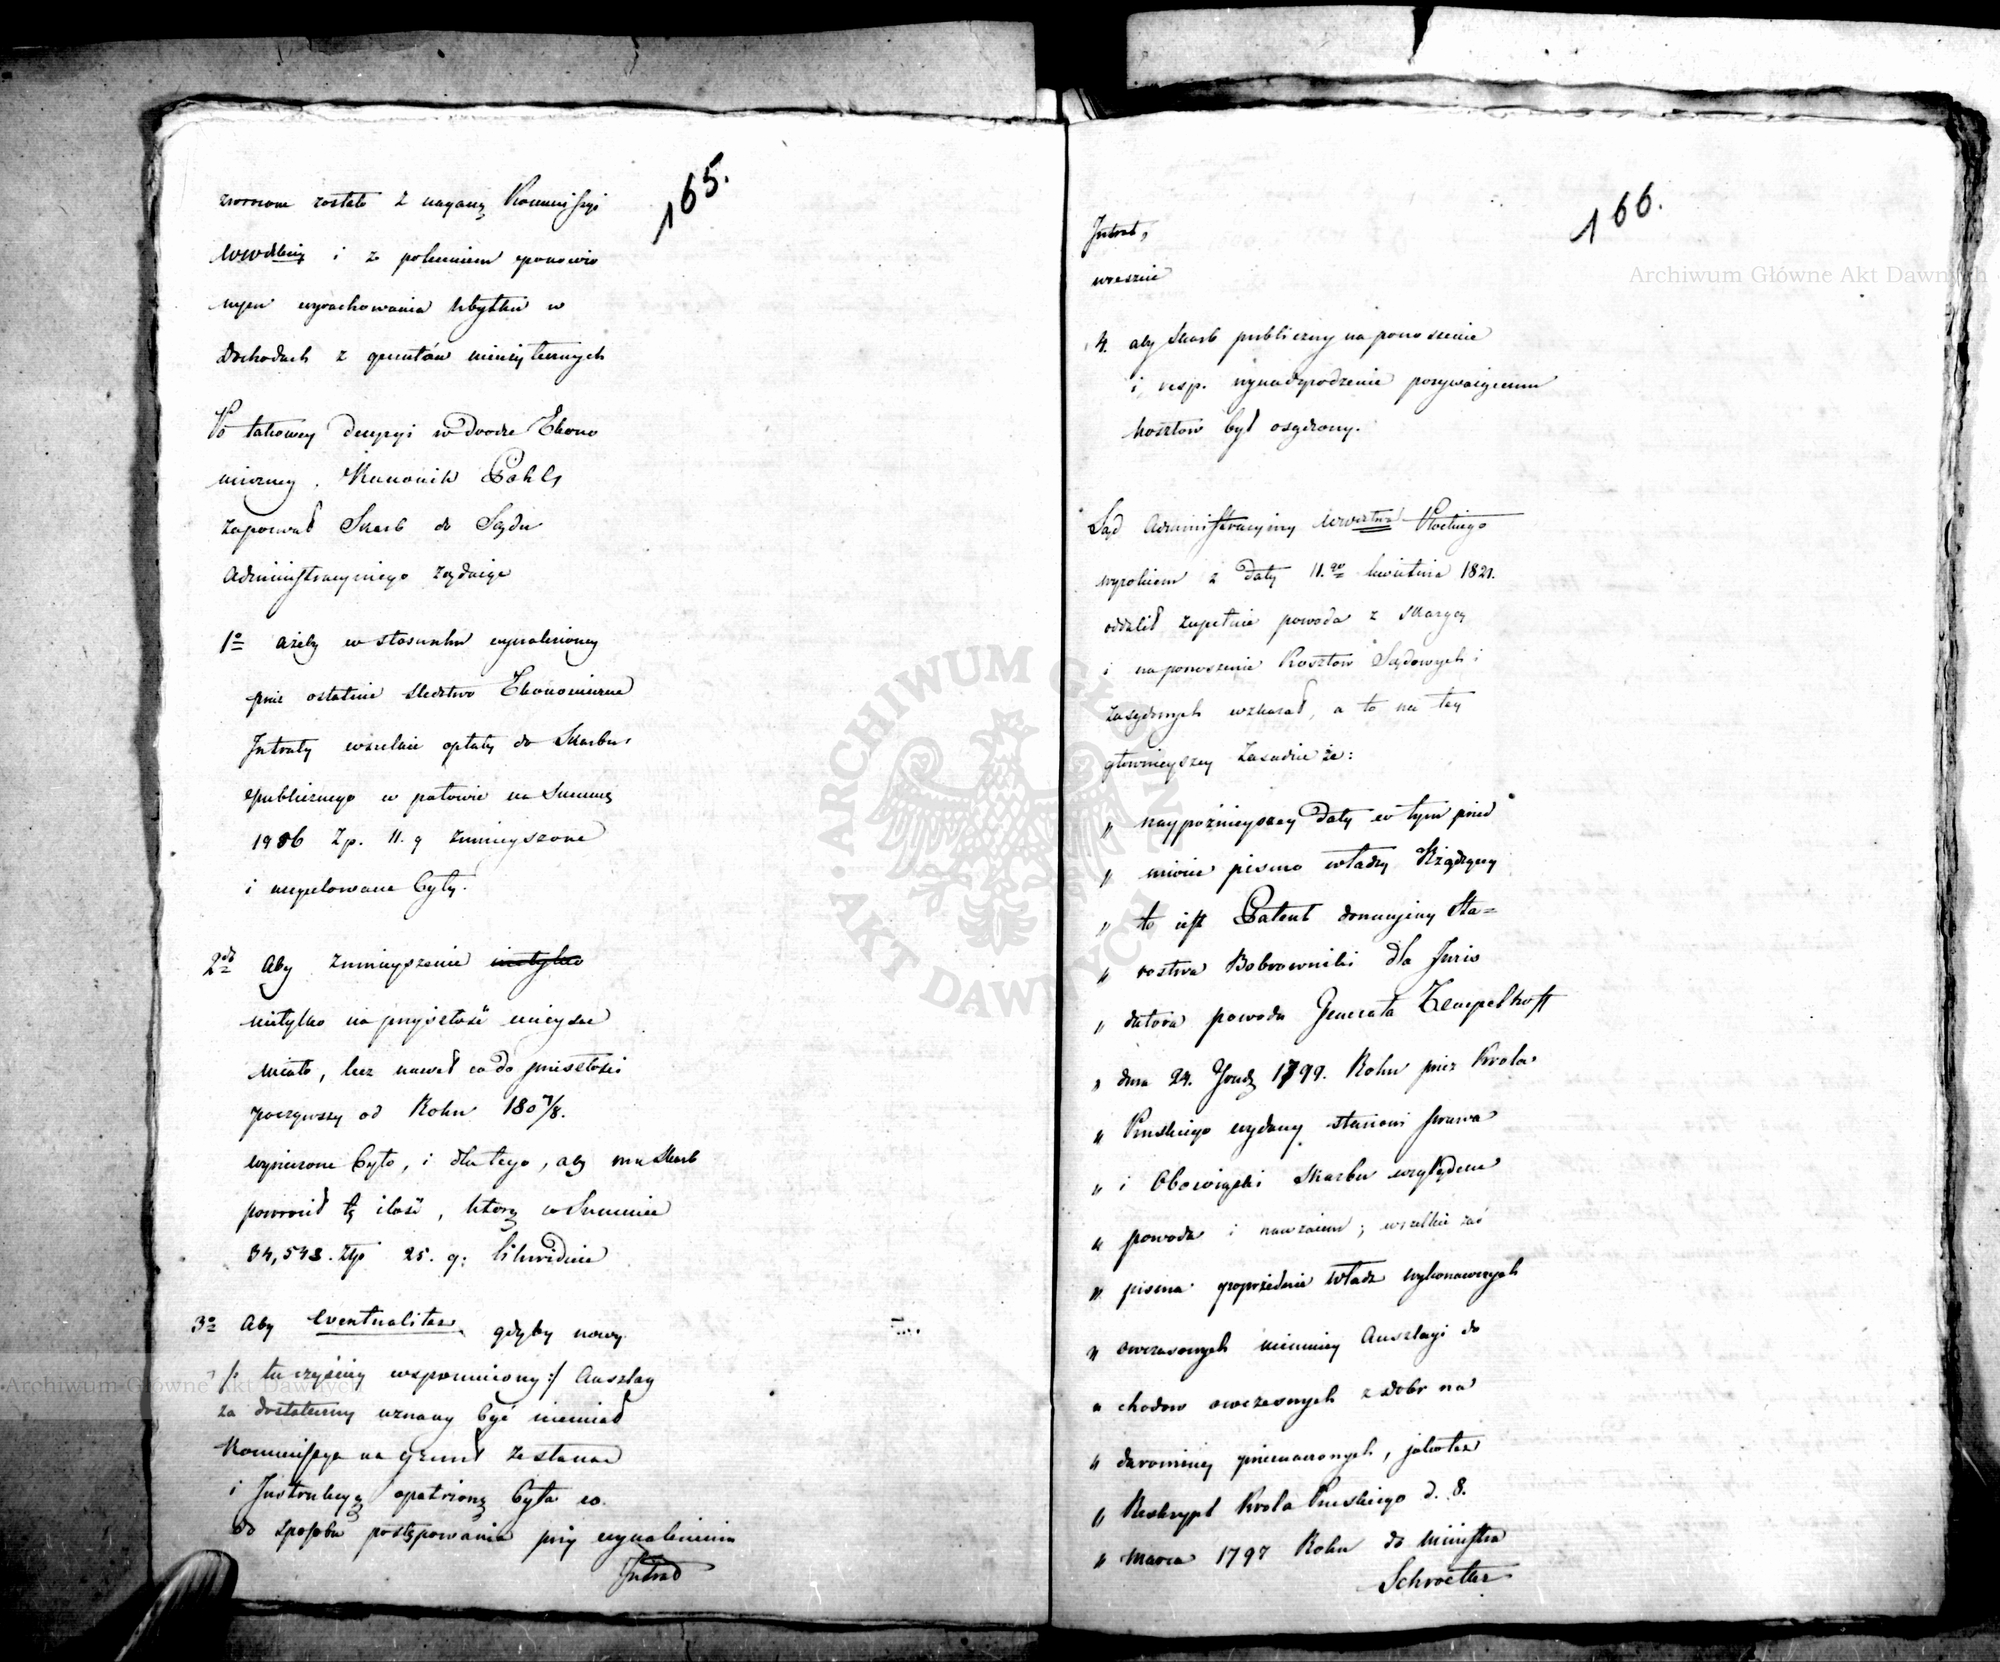 165.
zwrocone zostało z naganą Kommissyi
Wwdzkiey i z poleceniem ponowio
nego wyrachowania ubytku w
dochodach z gruntów
Po takowey decyzyi w drodze Ekono
miczney. Kanonik Pohls
zapozwał Skarb do Sądu
Administracyinego żądaiąc
1o ażeby w stosunku wynalezioney
przez ostatnie sledztwo Ekonomiczne
Intraty wszelkie opłaty do Skarbu
publicznego w połowie na Summę
1986 Zp. 11. g zmnieyszone
i uregulowane były.
2do Aby zmnieyszenie nietylko
nietylko na przyszłość mieysce
miało, lecz nawet co do przeszłości
począwszy od Roku 180 7/8.
wyrzeczone było, i dla tego, aby mu Skarb
powrócił tę ilość, którą w Summie
34,543. Złp 25. g: likwiduie
3o Aby eventualiter gdyby nowy
/: tu wspomniony :/ Anszlag
za dostateczny uznany być niemiał
Kommissya na grunt zesłana
i Instrukcyą opatrzoną była co
do sposobu postępowania przy wynalezieniu
Intrat
166.
Archiwum Główne Akt Dawnych
Intrat,
wreszcie
4. aby Skarb publiczny na ponoszenie
i resp. wynadgrodzenie pozywaiącemu
kosztow był osądzony.
Sąd Administracyiny Wwdztwa Płockiego
wyrokiem z daty 11.go kwietnia 1821.
oddalił zupełnie powoda z skargą
i na ponoszenie Kosztow Sądowych i
zasądzonych wskazał, a to na tey
głownieyszey zasadzie że:
" naypoźnieyszey daty w tym przed
" miocie pismo władzy Rządzącey
" to iest Patent donacyiny Sta=
" rostwa Bobrowniki dla Juris
" datora powoda Generała Tempelhoff
" dnia 24. Grud. 1799. Roku przez Krola
" Pruskiego wydany stanowi prawa
" i Obowiązki Skarbu względem
" powoda i nawzaiem; wszelkie zaś
" pisma poprzednie władz wykonawczych
" owczasowych niemniey Anszlagi do
" chodow owczasowych z dobr na
" darowizny przeznaczonych, jakoteż
" Reskrypt Krola Pruskiego d. 8.
" Marca 1797 Roku do ministra
Schroetter
Archiwum Główne Akt Dawnych
ARCHIWUM GŁÓWNE AKT DAWNYCH